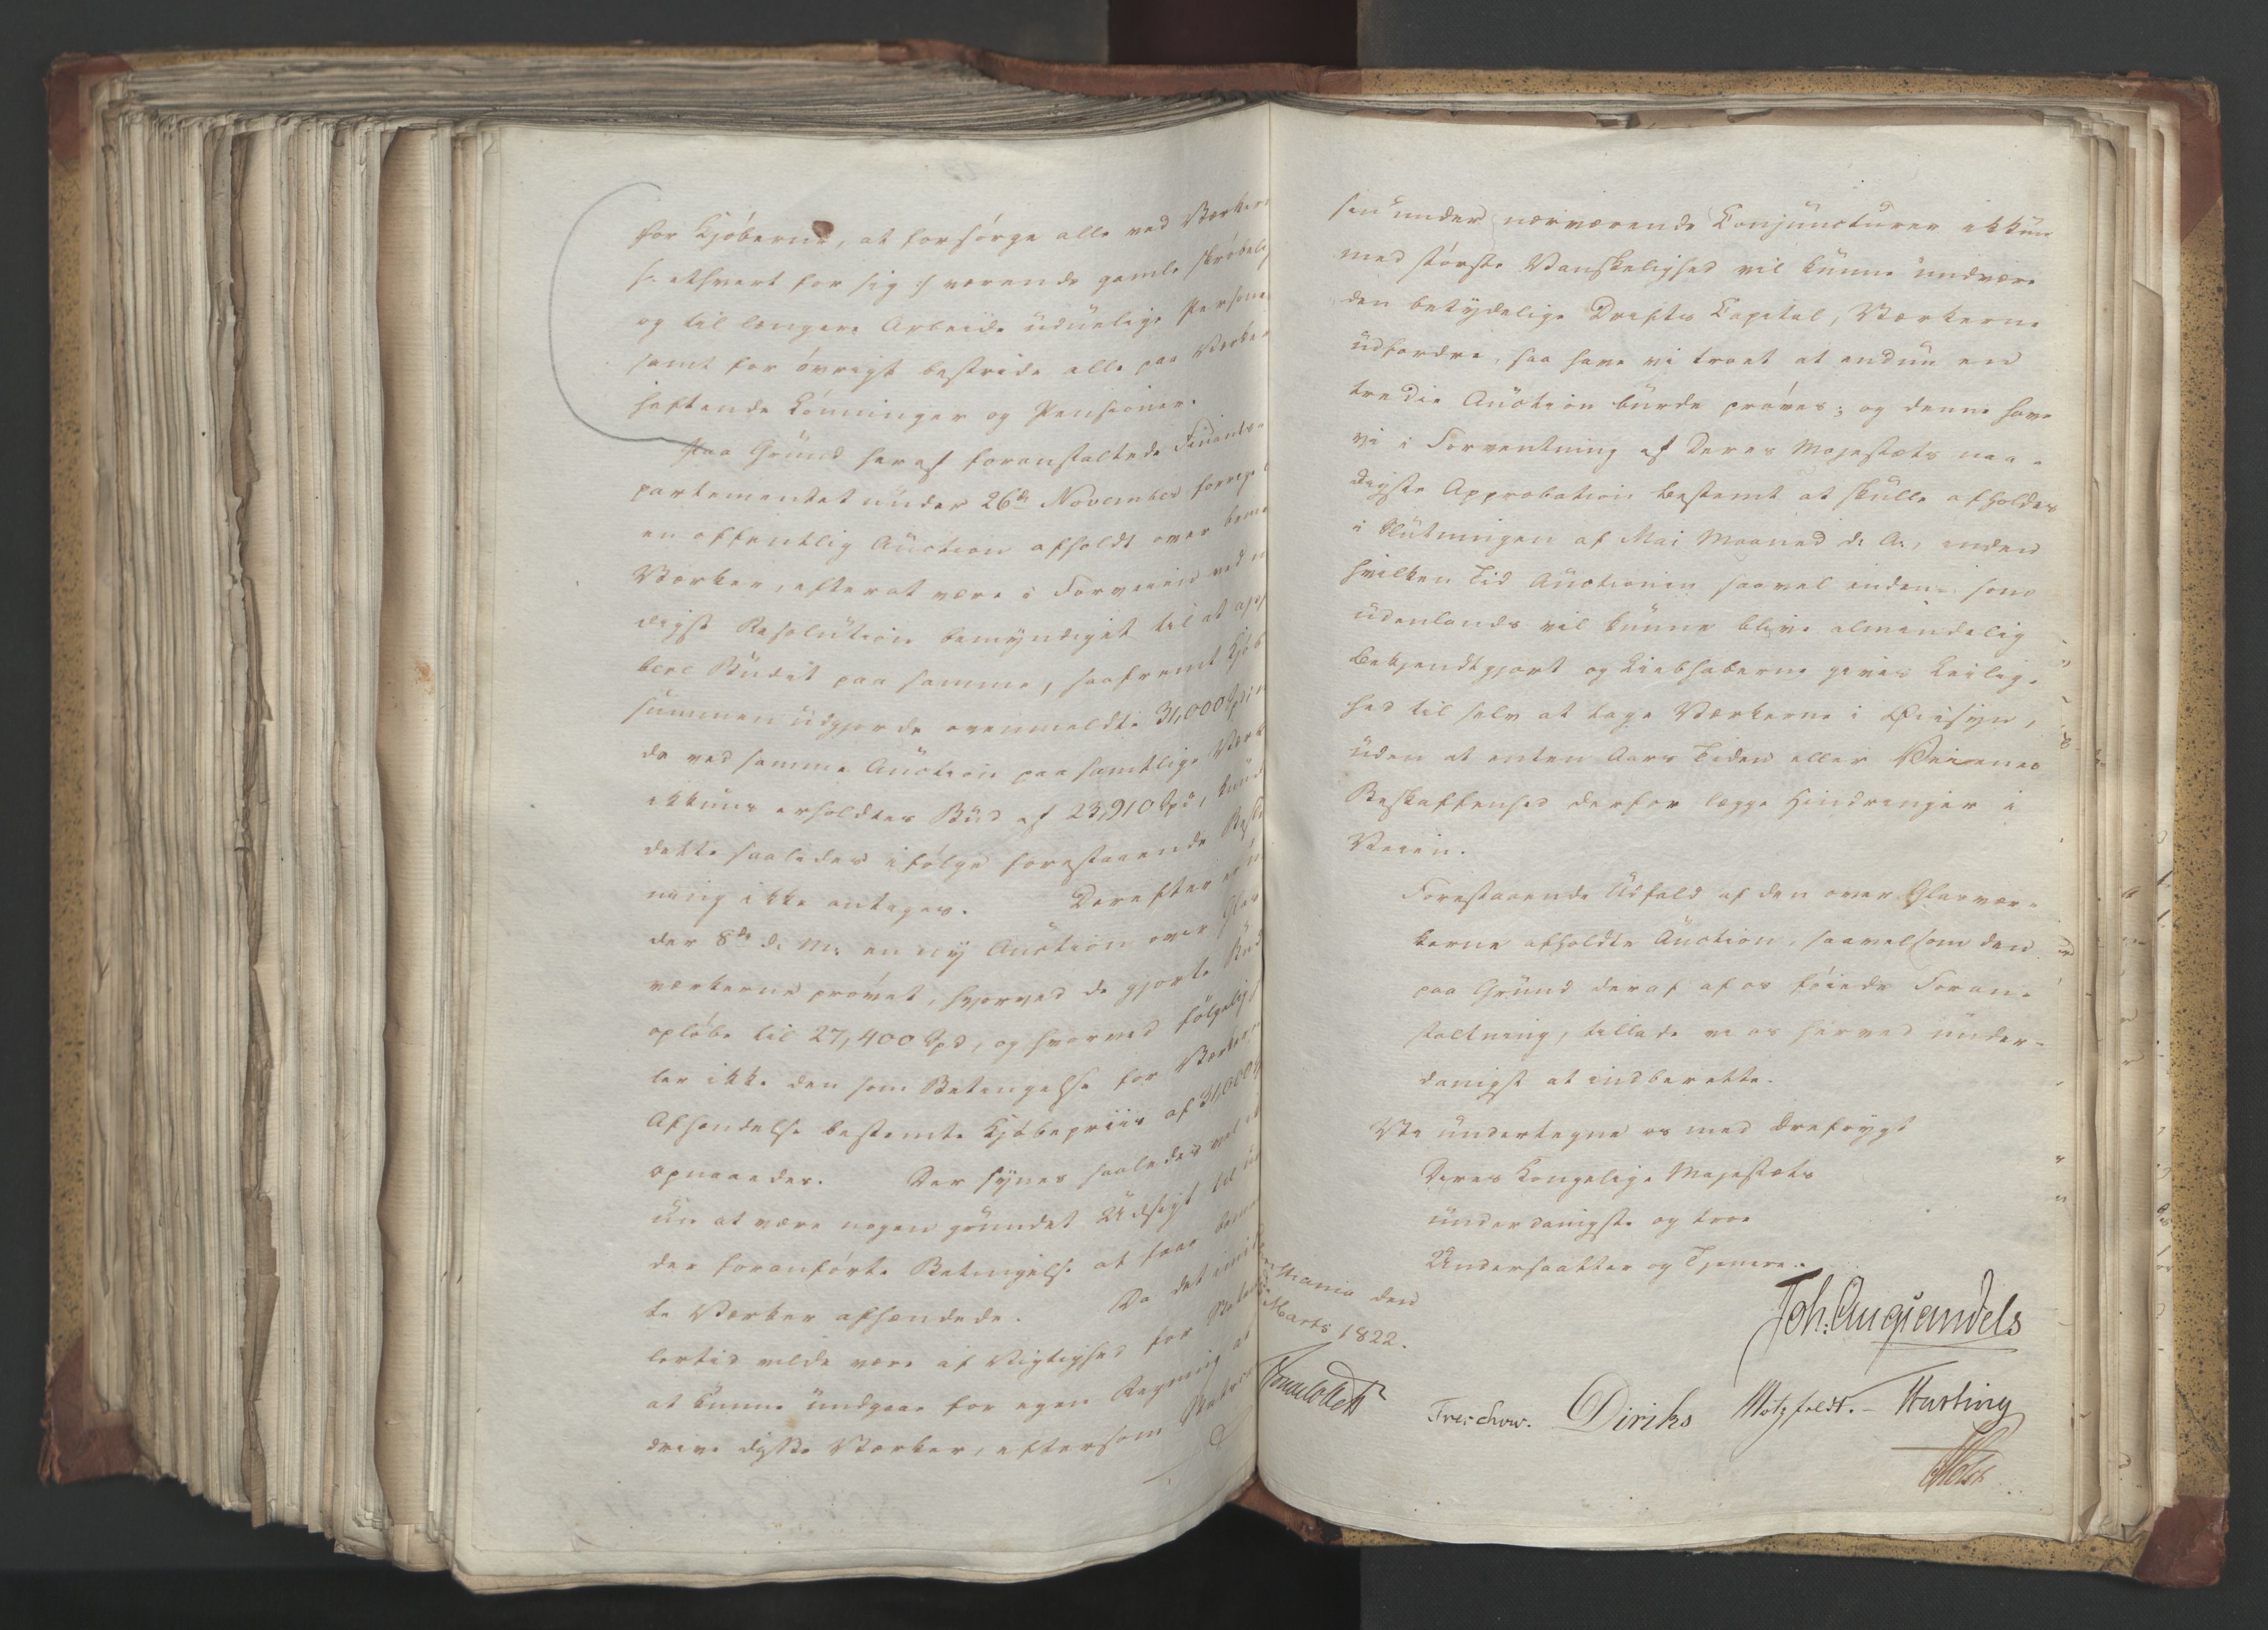 for Kjöberne, at forsörge alle ved Værkern
/: ethvert for sig :/ værende gamle skröbeli
og til længere Arbeide üdüelige Persone
samt for övrigt bestride alle paa Værker
heftende Lönninger og Pensioner.
Paa Gründ heraf foranstaltede Finantsde
partementet ünder 26de November forrige
en offentlig Aüction afholdt over bem
Værker, efterat være i Forveien ved n
digst Resolütion bemyndiget til at
Büdet paa samme, saafremt Kjöb
sümmen üdgjorde ovenmeldte 31,000 Spd;
de ved samme Aüction paa samtlige Værk
ikküns erholdtes Büd af 23,910 Spd, künd
dette saaledes ifölge forestaaende
ning ikke antages. Derefter er
der 8de d: M: en ny Aüction over Glas
værkerne prövet, hvorved de gjorte Büd
oplöbe til 27,400 Spd, og hvorved fölgelig
ler ikke den som Betingelse for Værkern
Afhændelse bestemte Kjöbepriis af 31,000
opnaaedes. Der synes saaledes vel
nü at være nogen gründet Üdsigt til ün
der foranförte Betingelse at faae bem
te Værker afhændede. Da det imid
lertid vilde være af Vigtighed for Staten
at künne ündgaae for egen Regning at
drive disse Værker, eftersom Staten
sen ünder nærværende Conjüncturer ikkün
med störste Vanskelighed vil künne ündvære
den betydelige Drifts Capital, Værkerne
üdfordre, saa have vi troet at endnü en
tredie Aüction bürde pröves; og denne have
vi i Forventning af Deres Majestæts naa-
digste Approbation bestemt at skülle afholdes
i Slütningen af Mai Maaned d: A:, inden
hvilken Tid Aüctionen saavel inden- som
üdenlands vil künne blive almindelig
bekjendtgjort og Liebhaberne gives Leilig-
hed til selv at tage Værkerne i Öiesyn,
üden at enten Aars Tiden eller Veienes
Beskaffenhed derfor lægge Hindringer i
Veien.
Forestaaende Üdfald af den over Glasvær-
kerne afholdte Aüction, saavelsom den
paa Gründ deraf af os föiede Foran-
staltning, tillade vi os herved ünder-
danigst at indberette.
Vi ündertegne os med Ærefrygt
Deres Kongelige Majestæts
ünderdanigste og troe
Undersaatter og Tjenere.
stiania den
Marts 1822.
Joh: Aug: Sandels
Jonas Collett
Treschow. Diriks Motzfeldt. Hasting
Holst